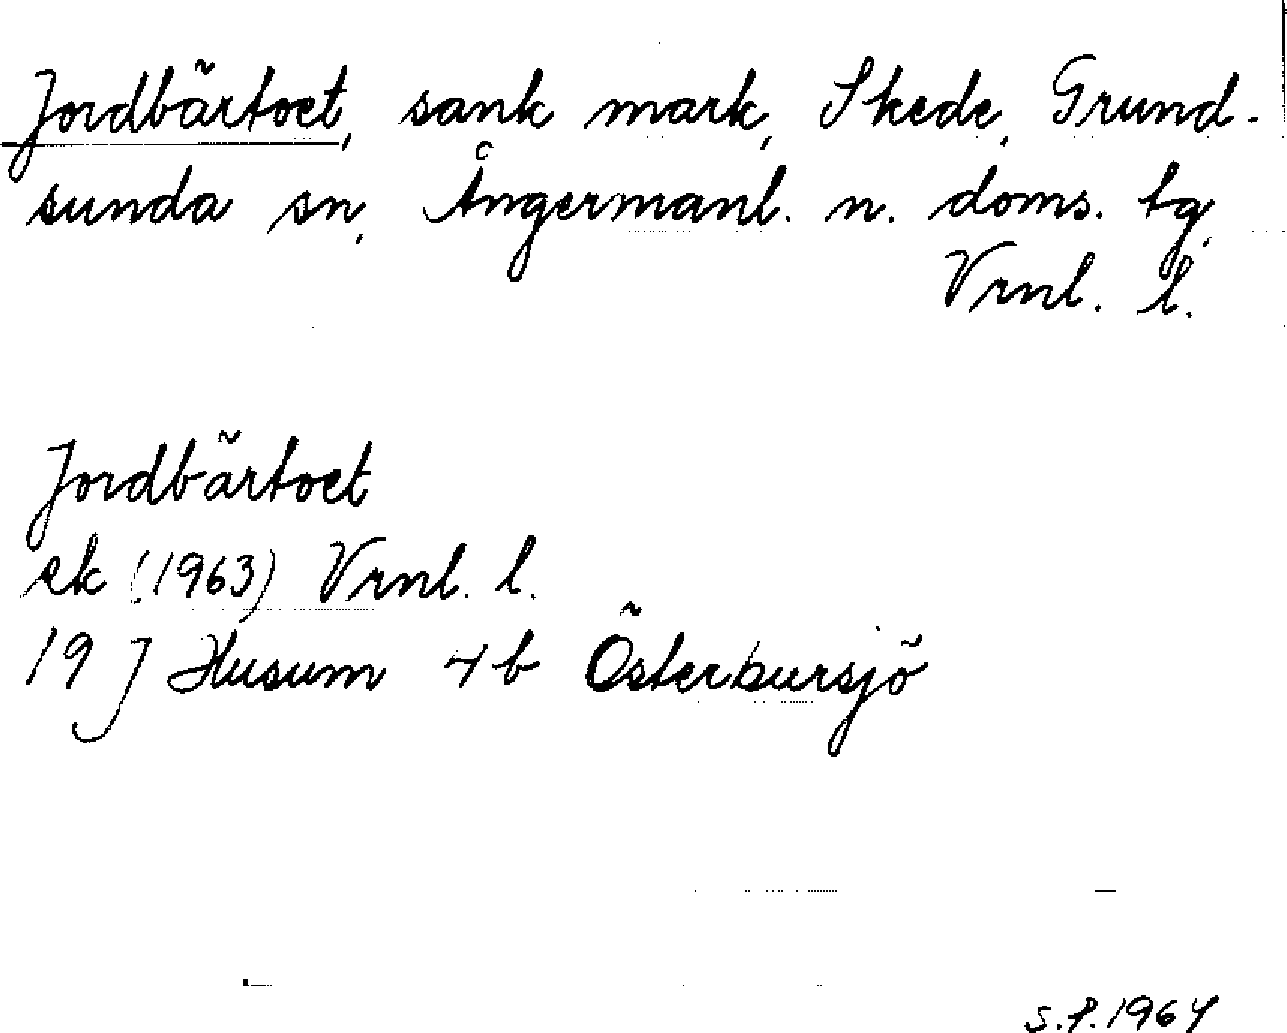 Jordbärtoet, sank mark, Skede, Grund-
sunda sn, Ångermanl. n. doms. tg,
Vrnl. l.
Jordbärtoet
ek (1963) Vrnl. l.
19 J Husum 4b Österbursjö
S.P. 1964